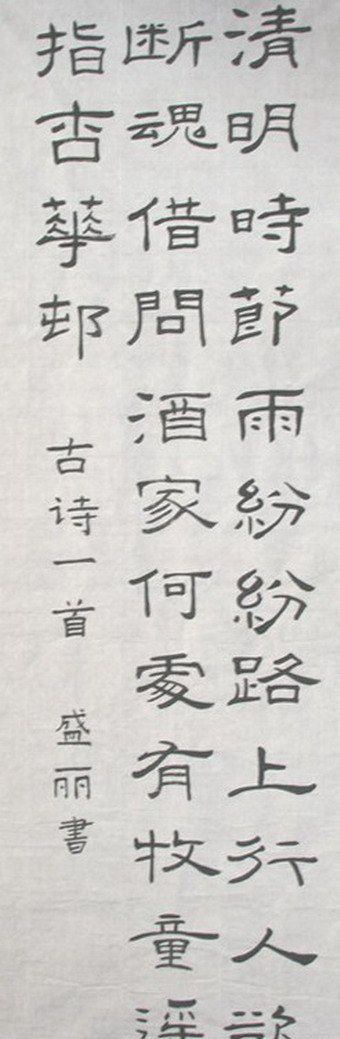 清明時節雨紛紛路上行人欲
断魂借問酒家何處有牧童遥
指杏華邨
古诗一首 盛丽書